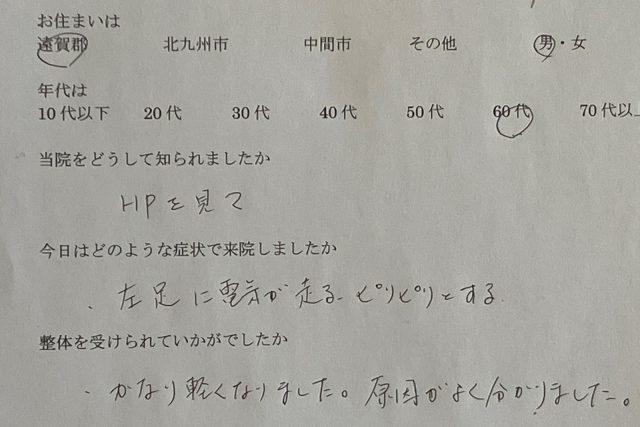 お住まいは
遠賀郡 北九州市 中間市 その他 男・女
年代は
10代以下 20代 30代 40代 50代 60代 70代以上
当院をどうして知られましたか
HPを見て
今日はどのような症状で来院しましたか
・左足に電気が走る ピリピリとする
整体を受けられていかがでしたか
・かなり軽くなりました。原因がよく分かりました。